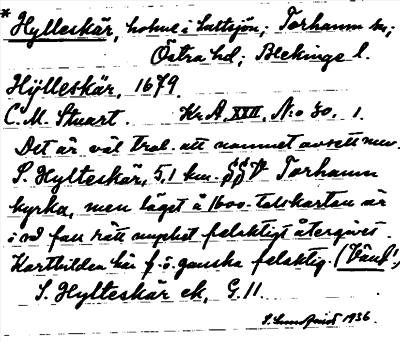 * Hylleskär, holme i saltsjön; Torhamn sn;
Östra hd; Blekinge l.
Hÿlleskär, 1679.
C.M. Stuart. Kr.A. XXII, N:o 30. 1.
Det är väl trol. att namnet avsett nuv.
S. Hylteskär, 5,1 km. SSV Torhamn
kyrka, men läget å 1600-talskartan är
i så fall rätt mycket felaktigt återgivet.
Kartbilden här f.ö. ganska felaktig.
S. Hylteskär ek. G. 11.
1936.